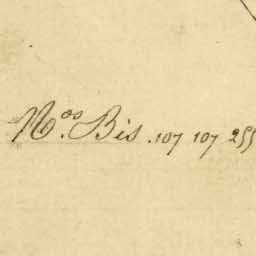 N.os Bis .107 107 255